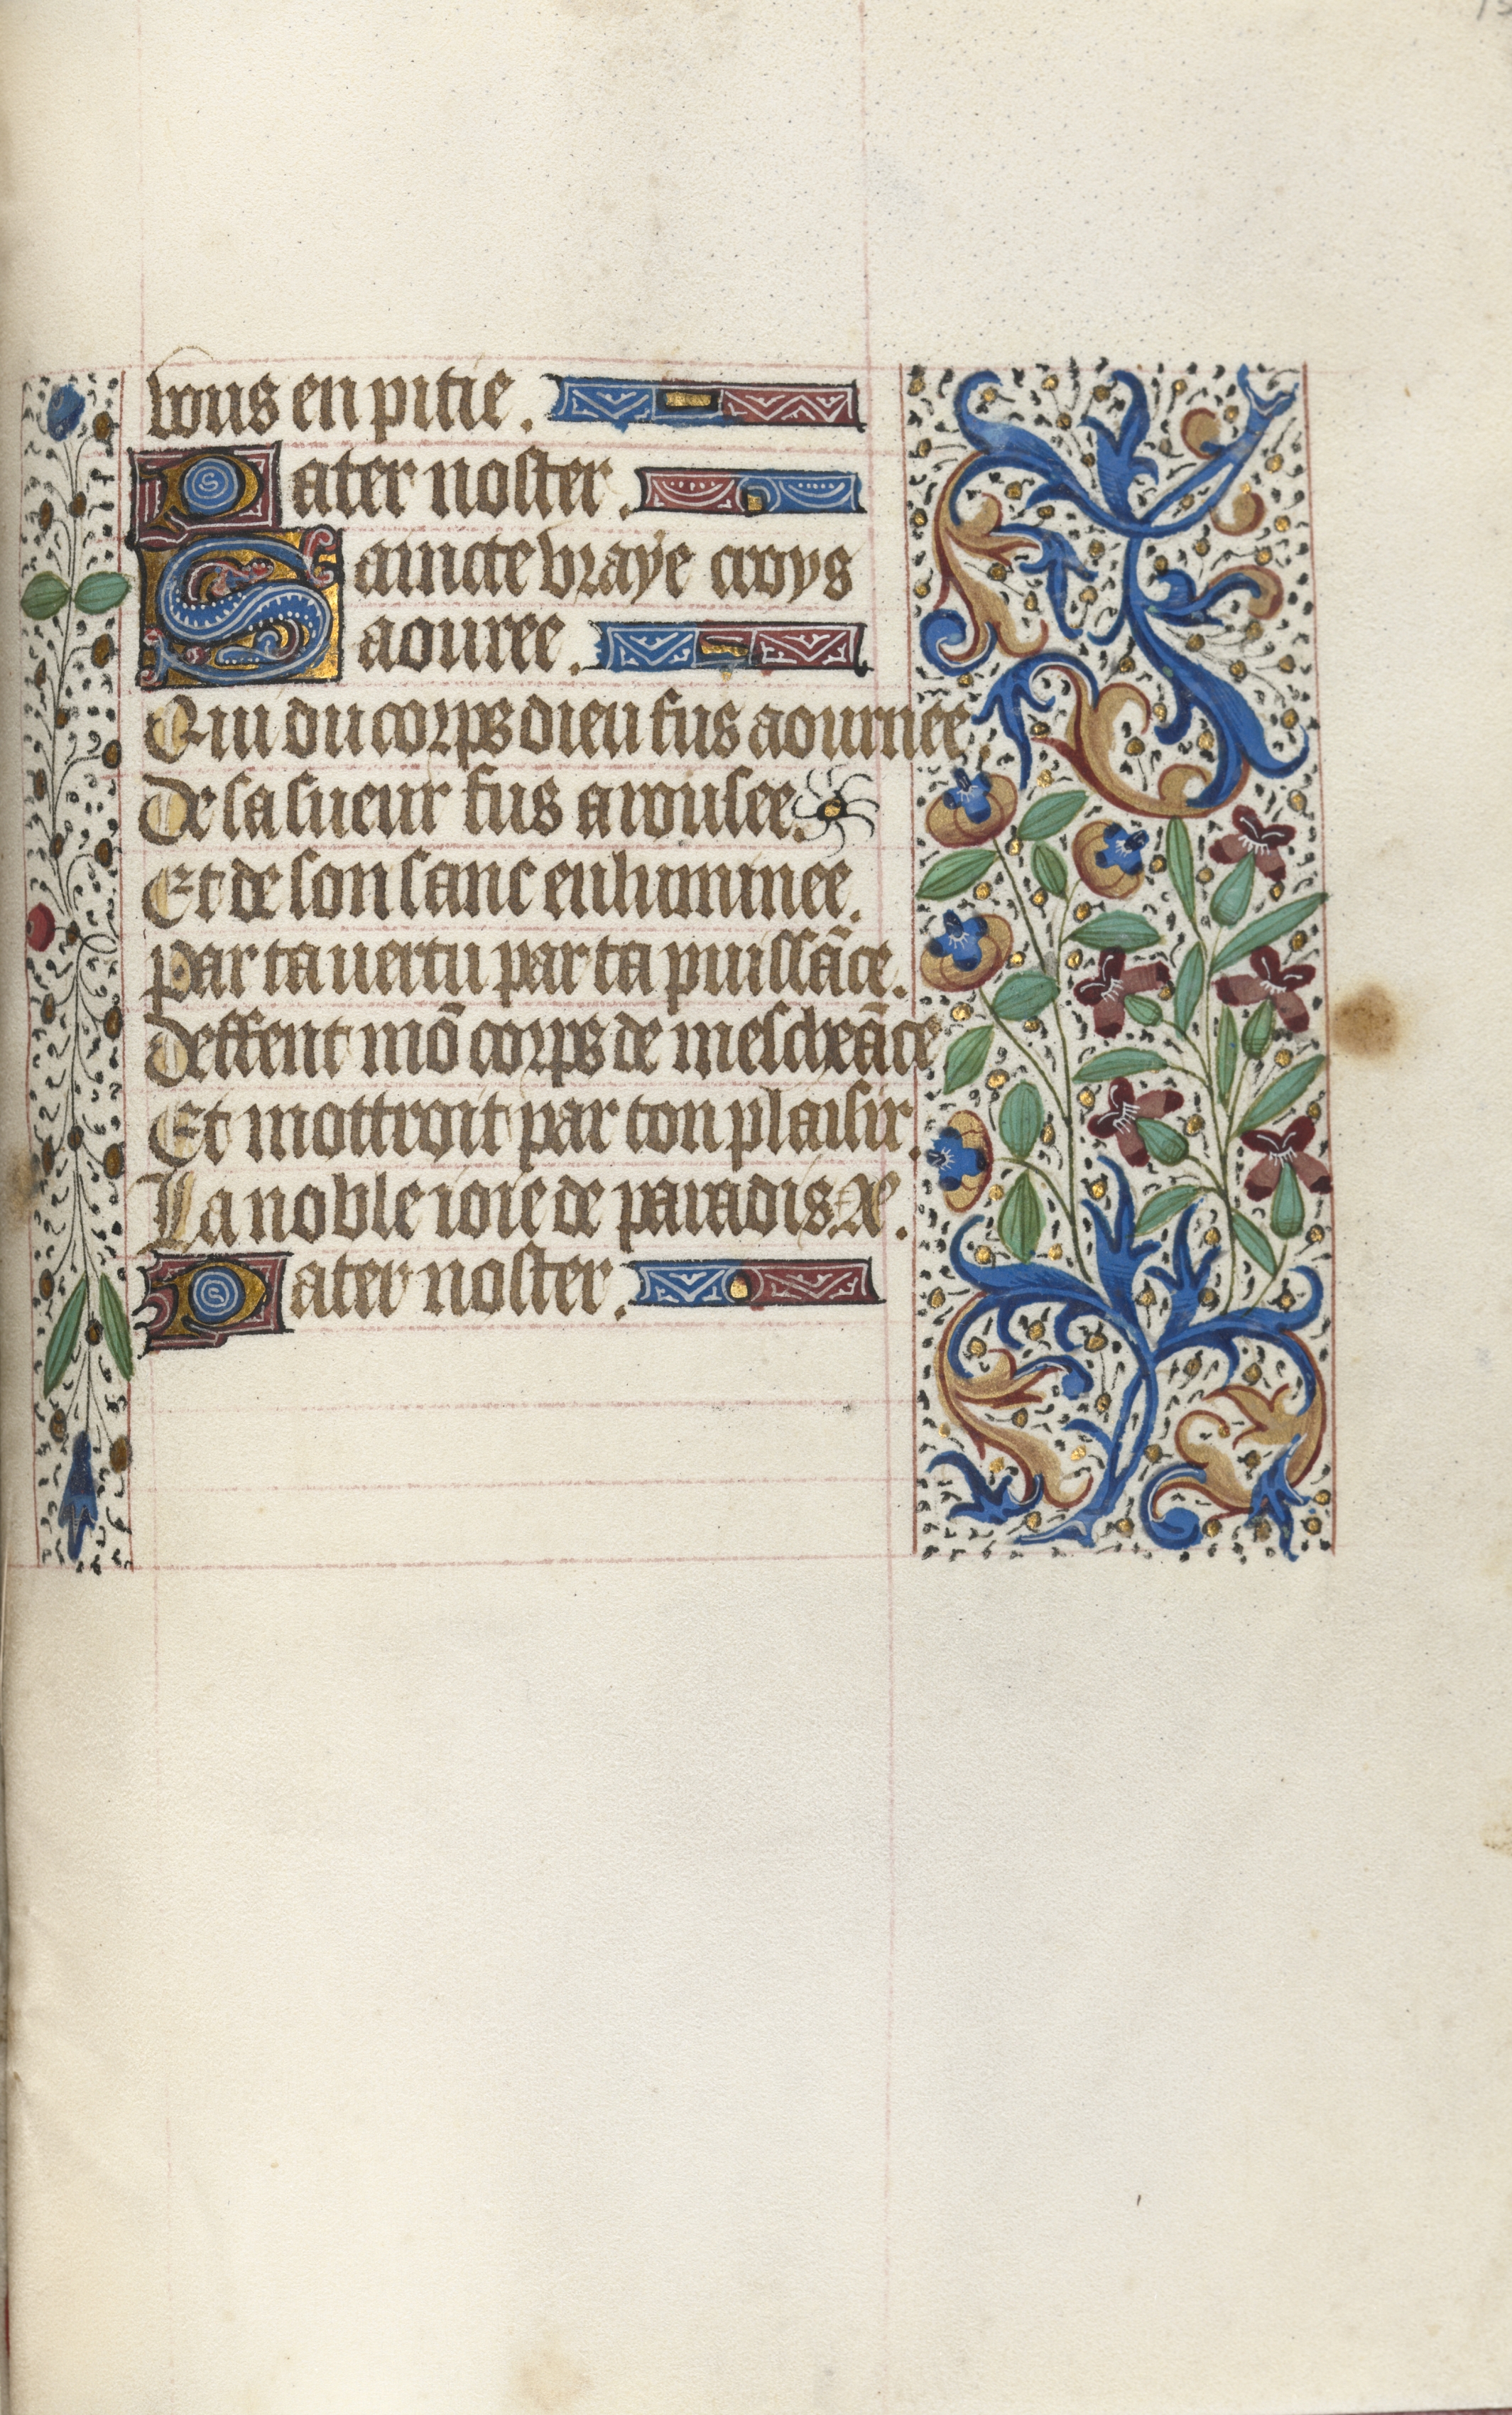 vous en pitie.
Pater noster.
Saincte vraye croys
aouree.
Qui du corps dieu fus aournee.
De sa sueur fus arousee.
Et de son sanc enluminee.
Par ta uertu par ta puissãce.
Deffent mõ corps de mescheãce
Et mottroit par ton plaisir.
La noble ioie de paradis.
Pater noster.